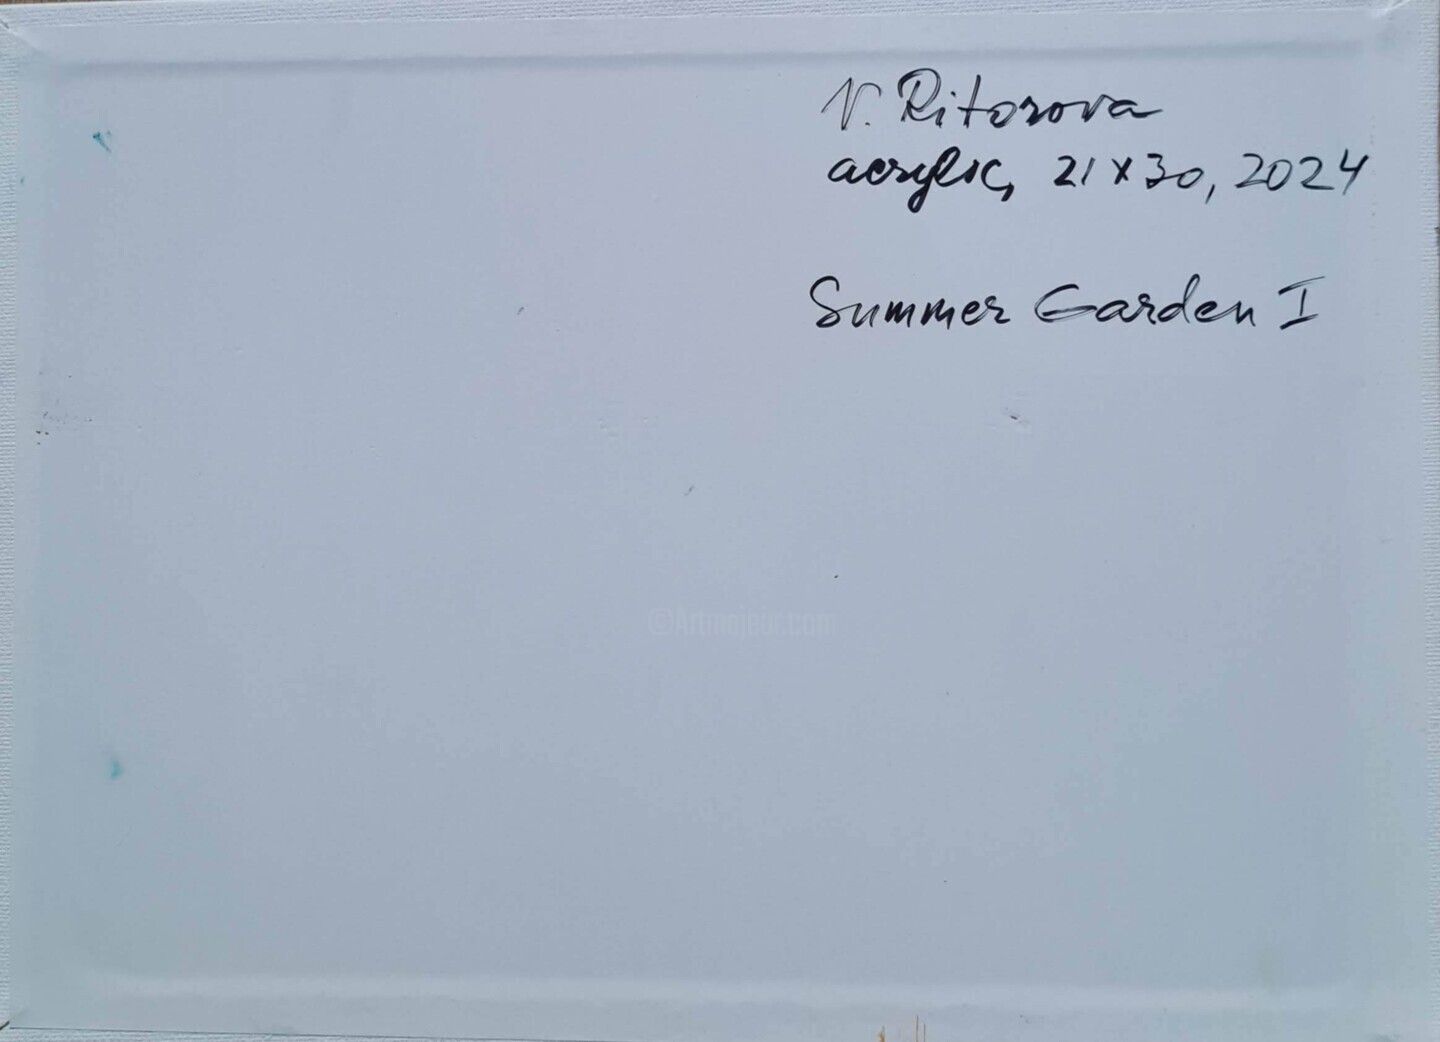 V. Ritorova
acrylic, 21 x 30, 2024
Summer Garden I
©Artmajeur.com